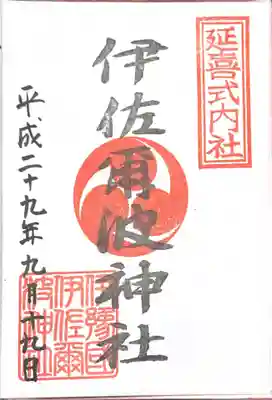 延喜式内社
伊佐爾波神社
平成二十九年九月十九日
伊豫国
伊佐爾
波神社